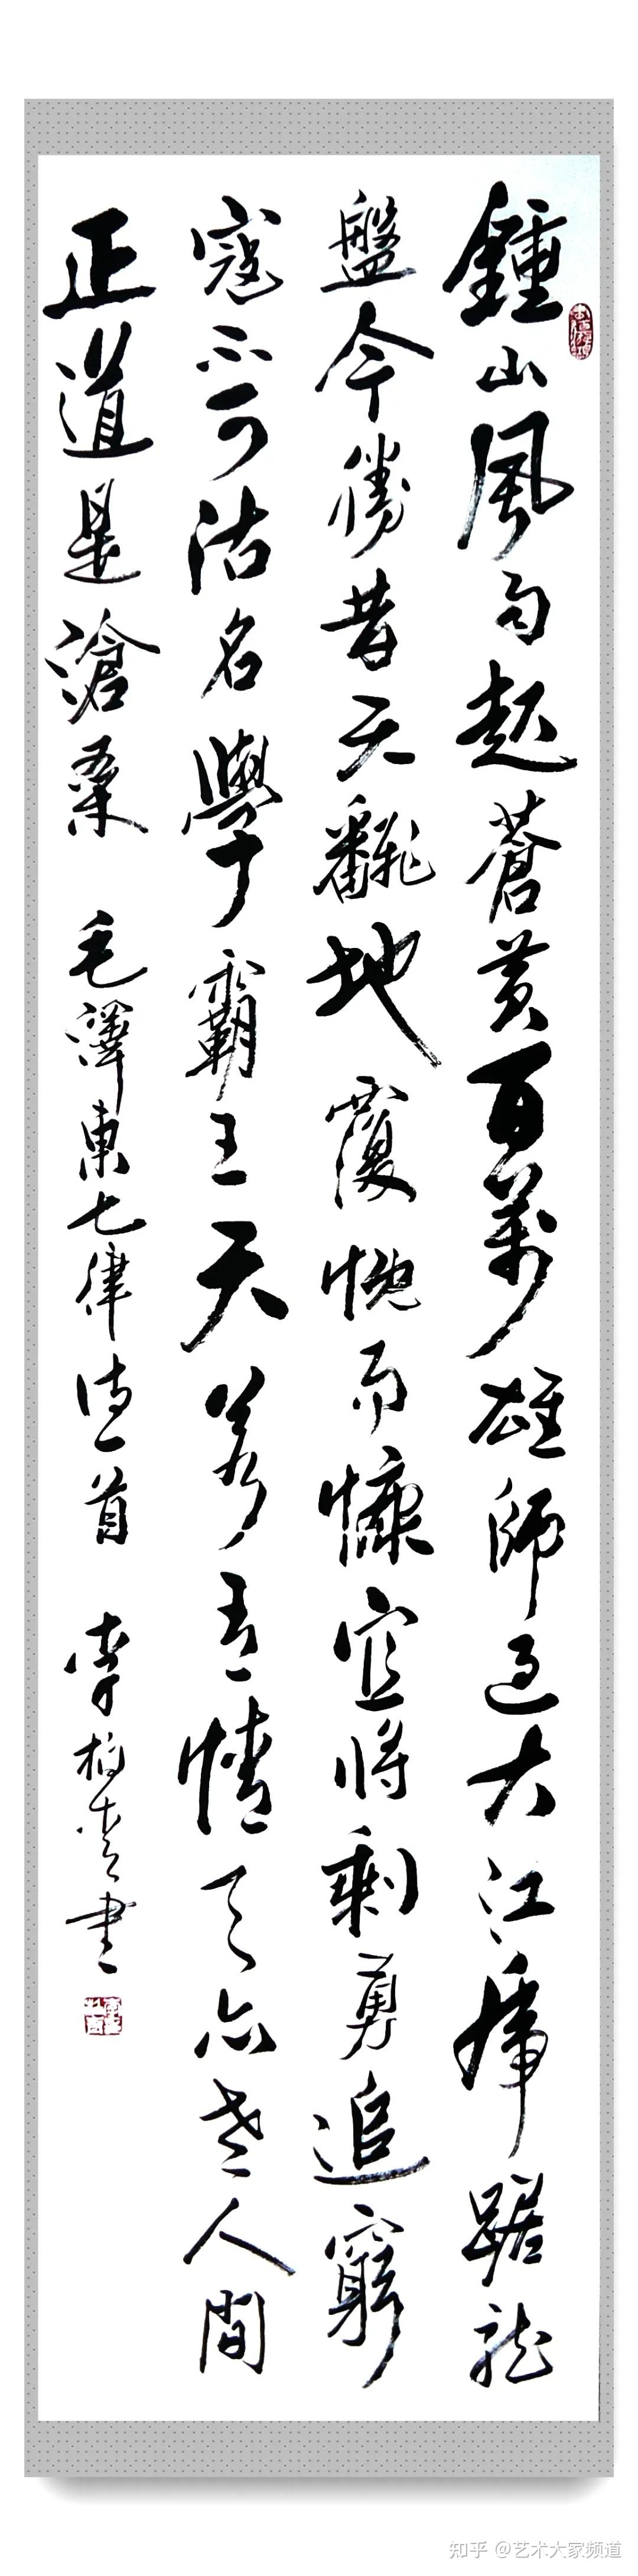 鍾山風雨起蒼黃百萬雄師過大江虎踞龍
盤今勝昔天翻地覆慨而慷宜將剩勇追窮
寇不可沽名學霸王天若有情天亦老人間
正道是滄桑 毛澤東七律詩一首 李柏青書
知乎 @艺术大家频道